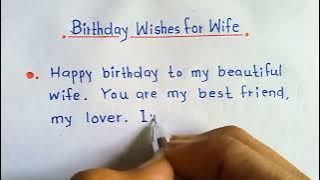 Birthday Wishes for Wife
Happy birthday to my beautiful
wife. You are my best friend,
my lover. I